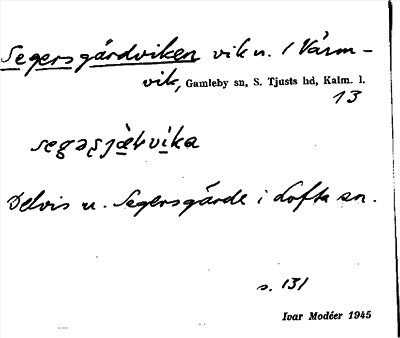 Segersgårdviken vik u. / Värm-
vik, Gamleby sn, S. Tjusts hd, Kalm. l.
13
Delvis u. Segersgärde i Lofta sn.
s. 131
Ivar Modéer 1945